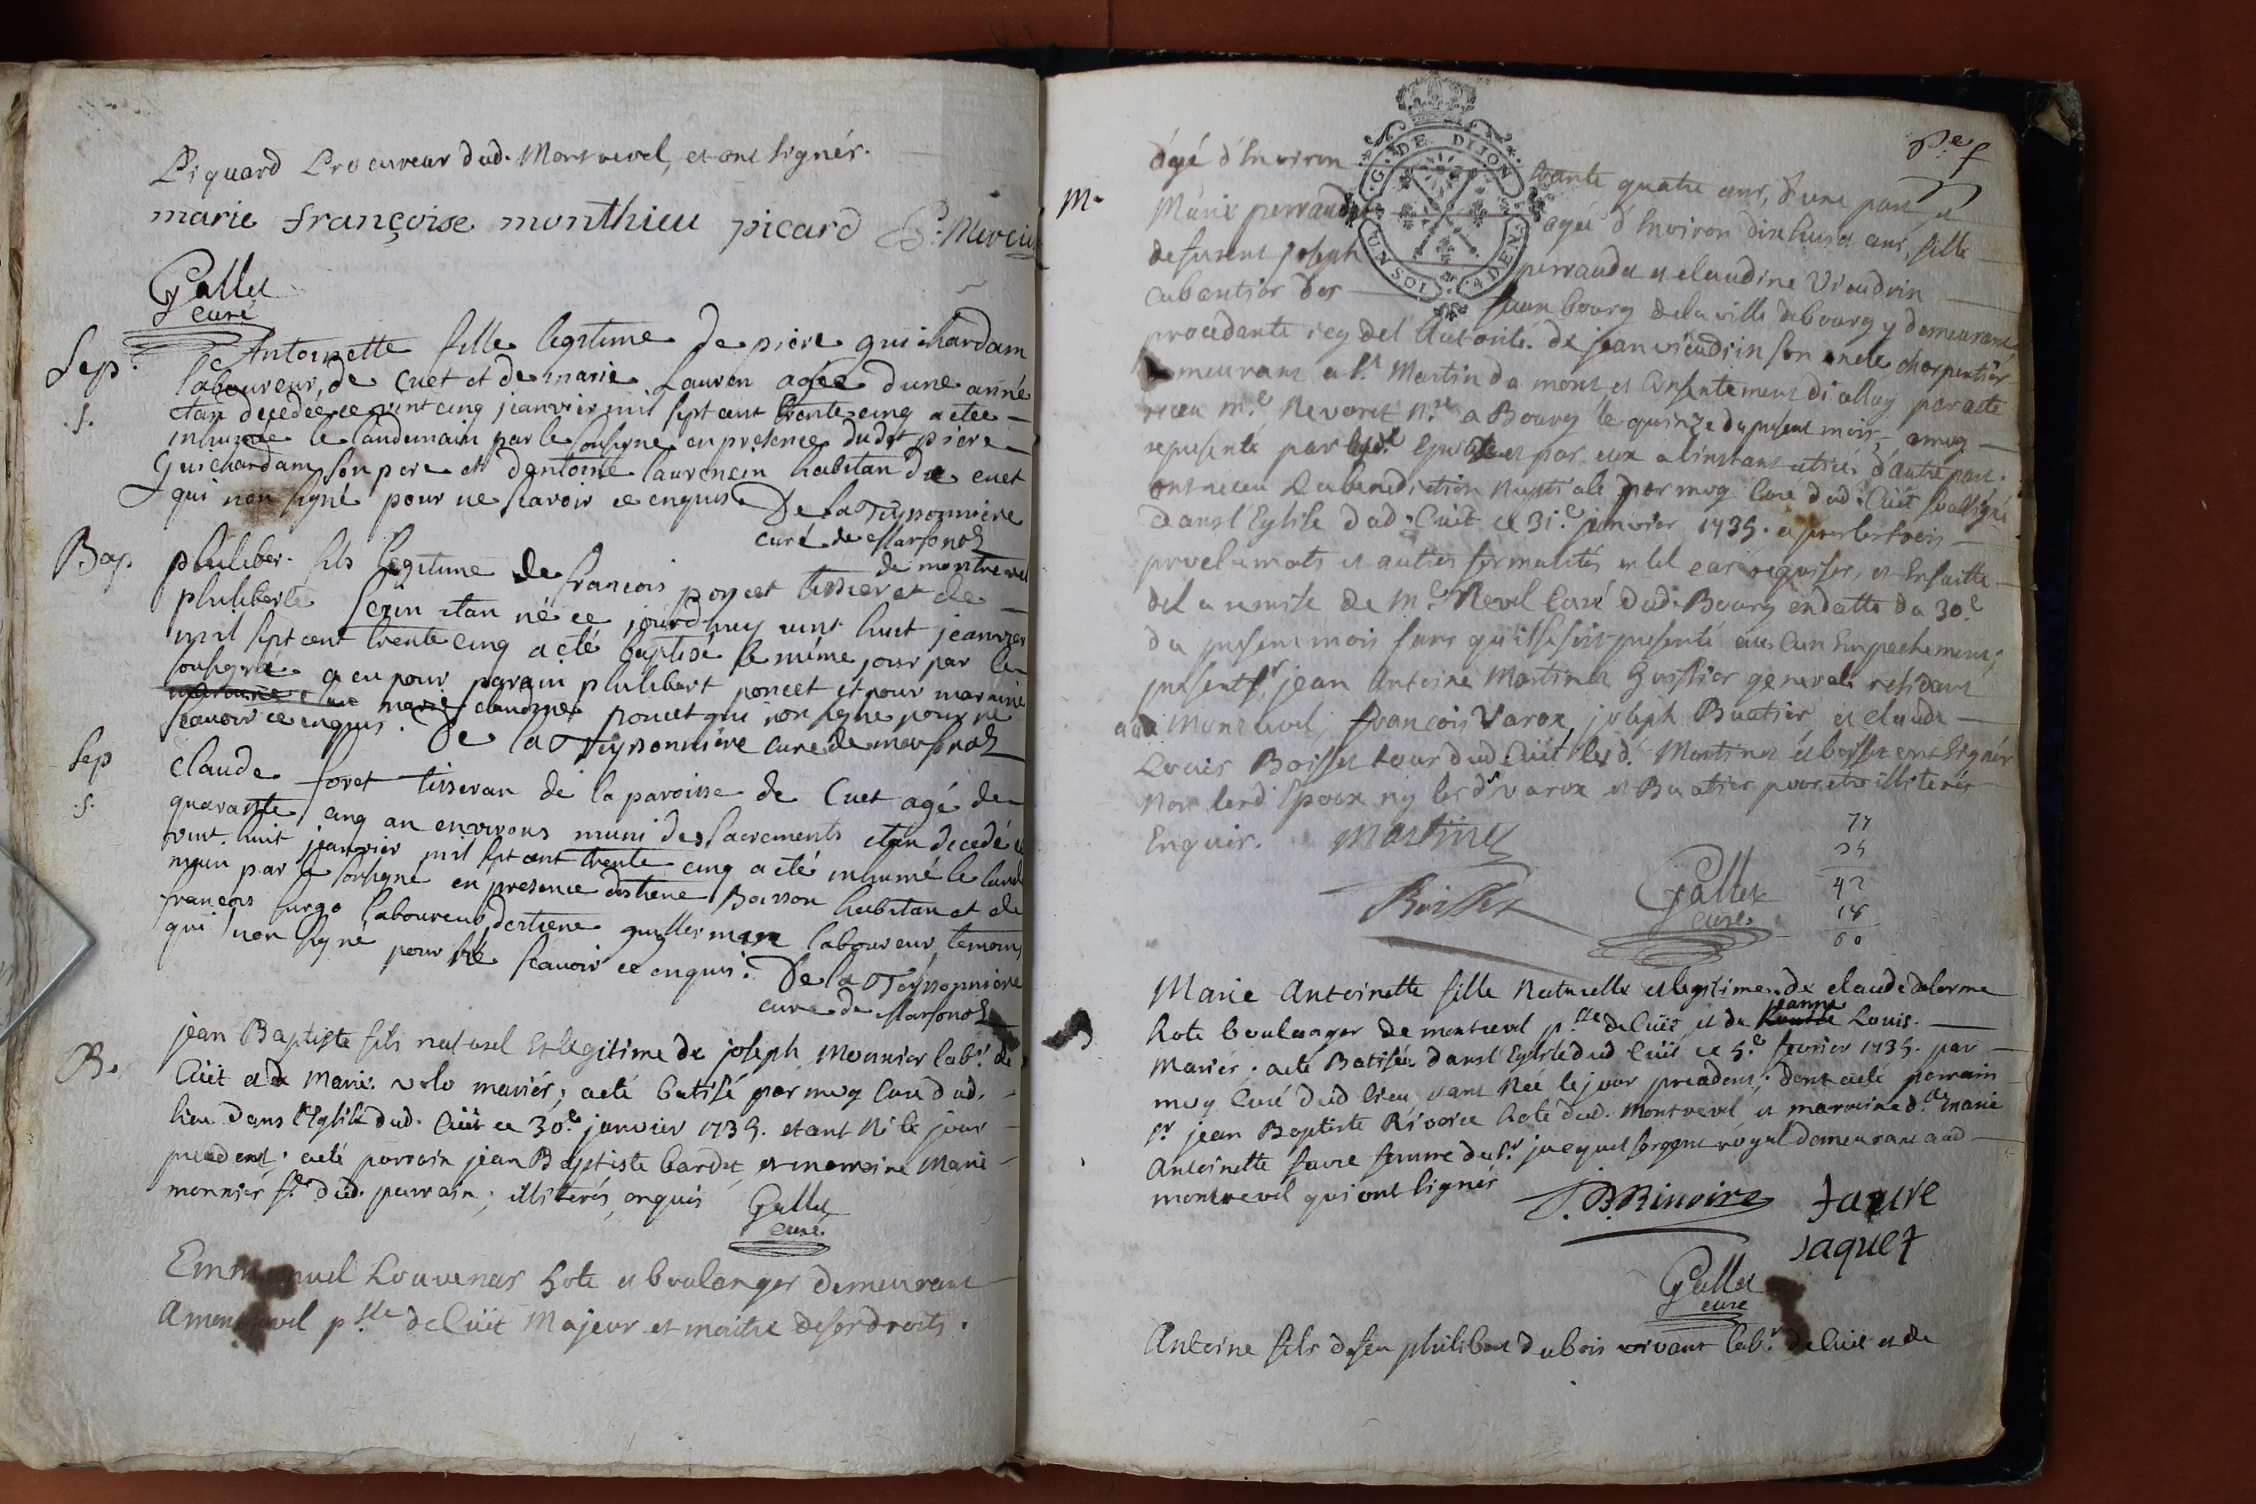 Piquard Procureur dud. Montrevel, et ont signés.
marie françoise monthieu picard
Gallet
curé
Sep.
Antoinette fille legitime de piere guichardam
laboureur, de Cuet et de marie Lauren agée dune anné
etan decedée ce vint cinq jeanvier mil sept cent trente cinq a etee
.s.
inhumée le landemain par le sousigne en presence dudit piere
Guichardam son pere et dantoine laurencin habitan de cuet
qui non signé pour ne scavoir ce enquis De la Teyssonniere
curé de Marsonas
de montrevel
Bap
philiber fils legitime de francois poncet tissier et de
philiberte serin etan né ce jourdhuy vint huit jeanvier
mil sept cent trente cinq a eté baptisé le même jour par le
sousigne a eu pour parain philibert poncet et pour maraine
claudine poncet qui non signe pour ne
scavoir ce enquis. De la Teyssonniere curé de marsonas
Sep
.s.
claude foret tisseran de la paroisse de Cuet agé de
quarante cinq an environs muni des sacrements etan decedé ce
vint-huit jeanvier mil sept cent trente cinq a eté inhumé le lande
main par le sousigne en presence destiene Boisson habitan et de
francois laboureur, destiene guillermin laboureur, temoins
qui non signé pour ne scavoir ce enquis. De la Teyssonniere
curé de Marsonas
B.
jean Baptiste fils naturel et legitime de joseph Monnier labr. de
Cüet et de Marie volo mariés; a eté batisé par moy Curé dud.
lieu dans l'Eglise dud. Cüet ce 30.e janvier 1735. etant né le jour
precedent; a eté parrain jean Baptiste bardet et marraine Marie
monnier fe. dud. parrain; illiterés, enquis Gallet
curé
Emmanuel Louvenas hote et boulanger demeurant
a montrevel psse de Cüet Majeur et maitre de ses droits.
agé d'Environ trante quatre ans, d'une part et
G. DE DIJON
M.
Marie perraudet agée d'Environ dixhuit ans, fille
defeu joseph perraudet et claudine Vieudrin
cabaretier des fauxbourg de la ville debourg y demeurant
procedante icy del'Autorité de jean vieudrin son oncle charpentier
demeurant a St. Martin du mont, et Consentement di alluy par acte
receu me. Revoret Nre. a Bourg le quinze du present mois, a moy
representé par lesd. Epoux et par eux a l'instant retiré d'autre part.
ont receu La benediction Nuptiale par moy Curé dud. Cüet soussigné
dans l'Eglise dud. Cüet ce 31.e janvier 1735. apres les trois
proclamats et autres formalités en tel cas requises, et Ensuitte
de la remise de Me. Revel Curé dud. Bourg endatte du 30.e
du present mois sans qu'il se soit presenté aucun Empechement;
presents sr. jean Antoine Martinet huissier general residant
aud. Montrevel, francois Varox, joseph Buatier, et claude
Louis Boisset tour dud Cüet lesd. Martinet et boisset ont signés
non lesd Epoux ny lesd. varox et Buatier pour etre illiterés
Enquis. Martinet
77
35
42
18
60
Boisset
Gallet
curé
B
Marie Antoinette fille Naturelle et legitime de claude delorme
hote boulanger de montrevel psse de Cüet et de jeanne Louis.
Mariés; a eté Batisée dans l'Eglise dud Cüet ce 5.e fevrier 1735. par
moy Curé dud lieu, etant Née le jour precedent; dont a eté parrain
sr. jean Baptiste Rivoire hote dud. Montrevel et marraine dlle. Marie
Antoinette favre femme du sr. jacquet sergent royal demeurant aud
montrevel qui ont signés
J.B. Rivoire favre
jaquet
Gallet
curé
Antoine fils de feu philibert dubois vivant labr. de Cüet et de